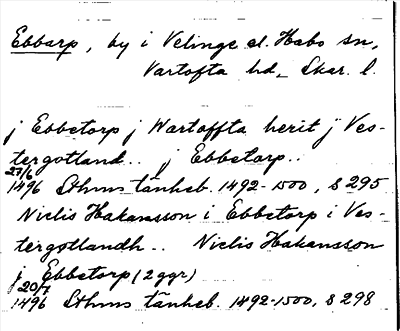 Ebbarp, by i Velinge el. Habo sn,
Vartofta hd, Skar. l.
j Ebbetorp j Wartoffta herit j Ves-
tergotland.. j Ebbetorp..
27/6
1496 Sthms tänkeb. 1492-1500, s 295
Niclis Hakansson i Ebbetorp i Ves-
tergotlandh.. Niclis Hakansson
j Ebbetorp (2 ggr)
20/7
1496 Sthms tänkeb. 1492-1500, s 298